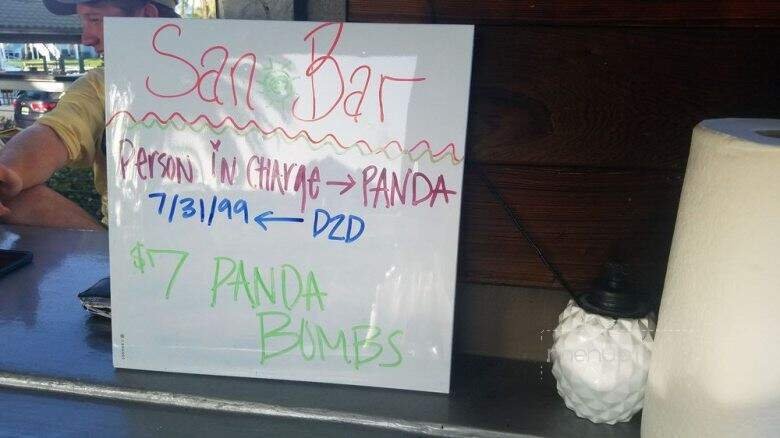 San Bar
Person in charge → PANDA
7/31/99 ← D2D
$7 PANDA
BOMBS